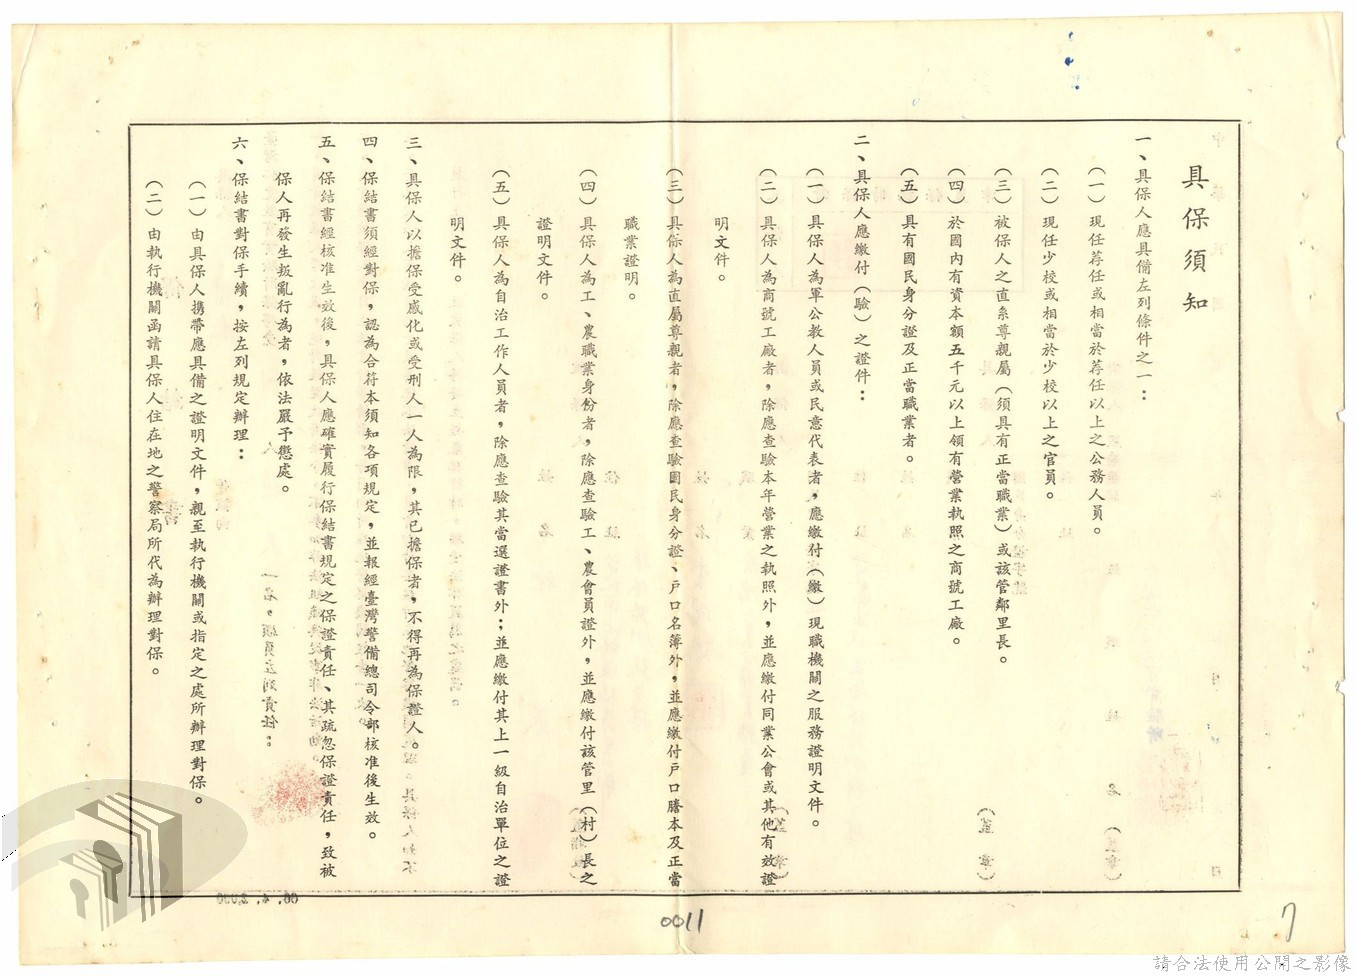 具保須知
一、具保人應具備左列條件之一：
（一）現任荐任或相當於荐任以上之公務人員。
（二）現任少校或相當於少校以上之官員。
（三）被保人之直系尊親屬（須具有正當職業）或該管鄰里長。
（四）於國內有資本額五千元以上領有營業執照之商號工廠。
（五）具有國民身分證及正當職業者。
二、具保人應繳付（驗）之證件：
（一）具保人為軍公教人員或民意代表者，應繳付（繳）現職機關之服務證明文件。
（二）具保人為商號工廠者，除應查驗本年營業之執照外，並應繳付同業公會或其他有效證
明文件。
（三）具保人為直屬尊親者，除應查驗國民身分證、戶口名簿外，並應繳付戶口謄本及正當
職業證明。
（四）具保人為工、農職業身份者，除應查驗工、農會員證外，並應繳付該管里（村）長之
證明文件。
（五）具保人為自治工作人員者，除應查驗其當選證書外；並應繳付其上一級自治單位之證
明文件。
三、具保人以擔保受感化或受刑人一人為限，其已擔保者，不得再為保證人。
四、保結書須經對保，認為合符本須知各項規定，並報經臺灣警備總司令部核准後生效。
五、保結書經核准生效後，具保人應確實履行保結書規定之保證責任、其疏忽保證責任，致被
保人再發生叛亂行為者，依法嚴予懲處。
六、保結書對保手續，按左列規定辦理：
（一）由具保人携帶應具備之證明文件，親至執行機關或指定之處所辦理對保。
（二）由執行機關函請具保人住在地之警察局所代為辦理對保。
0011
7
請合法使用公開之影像